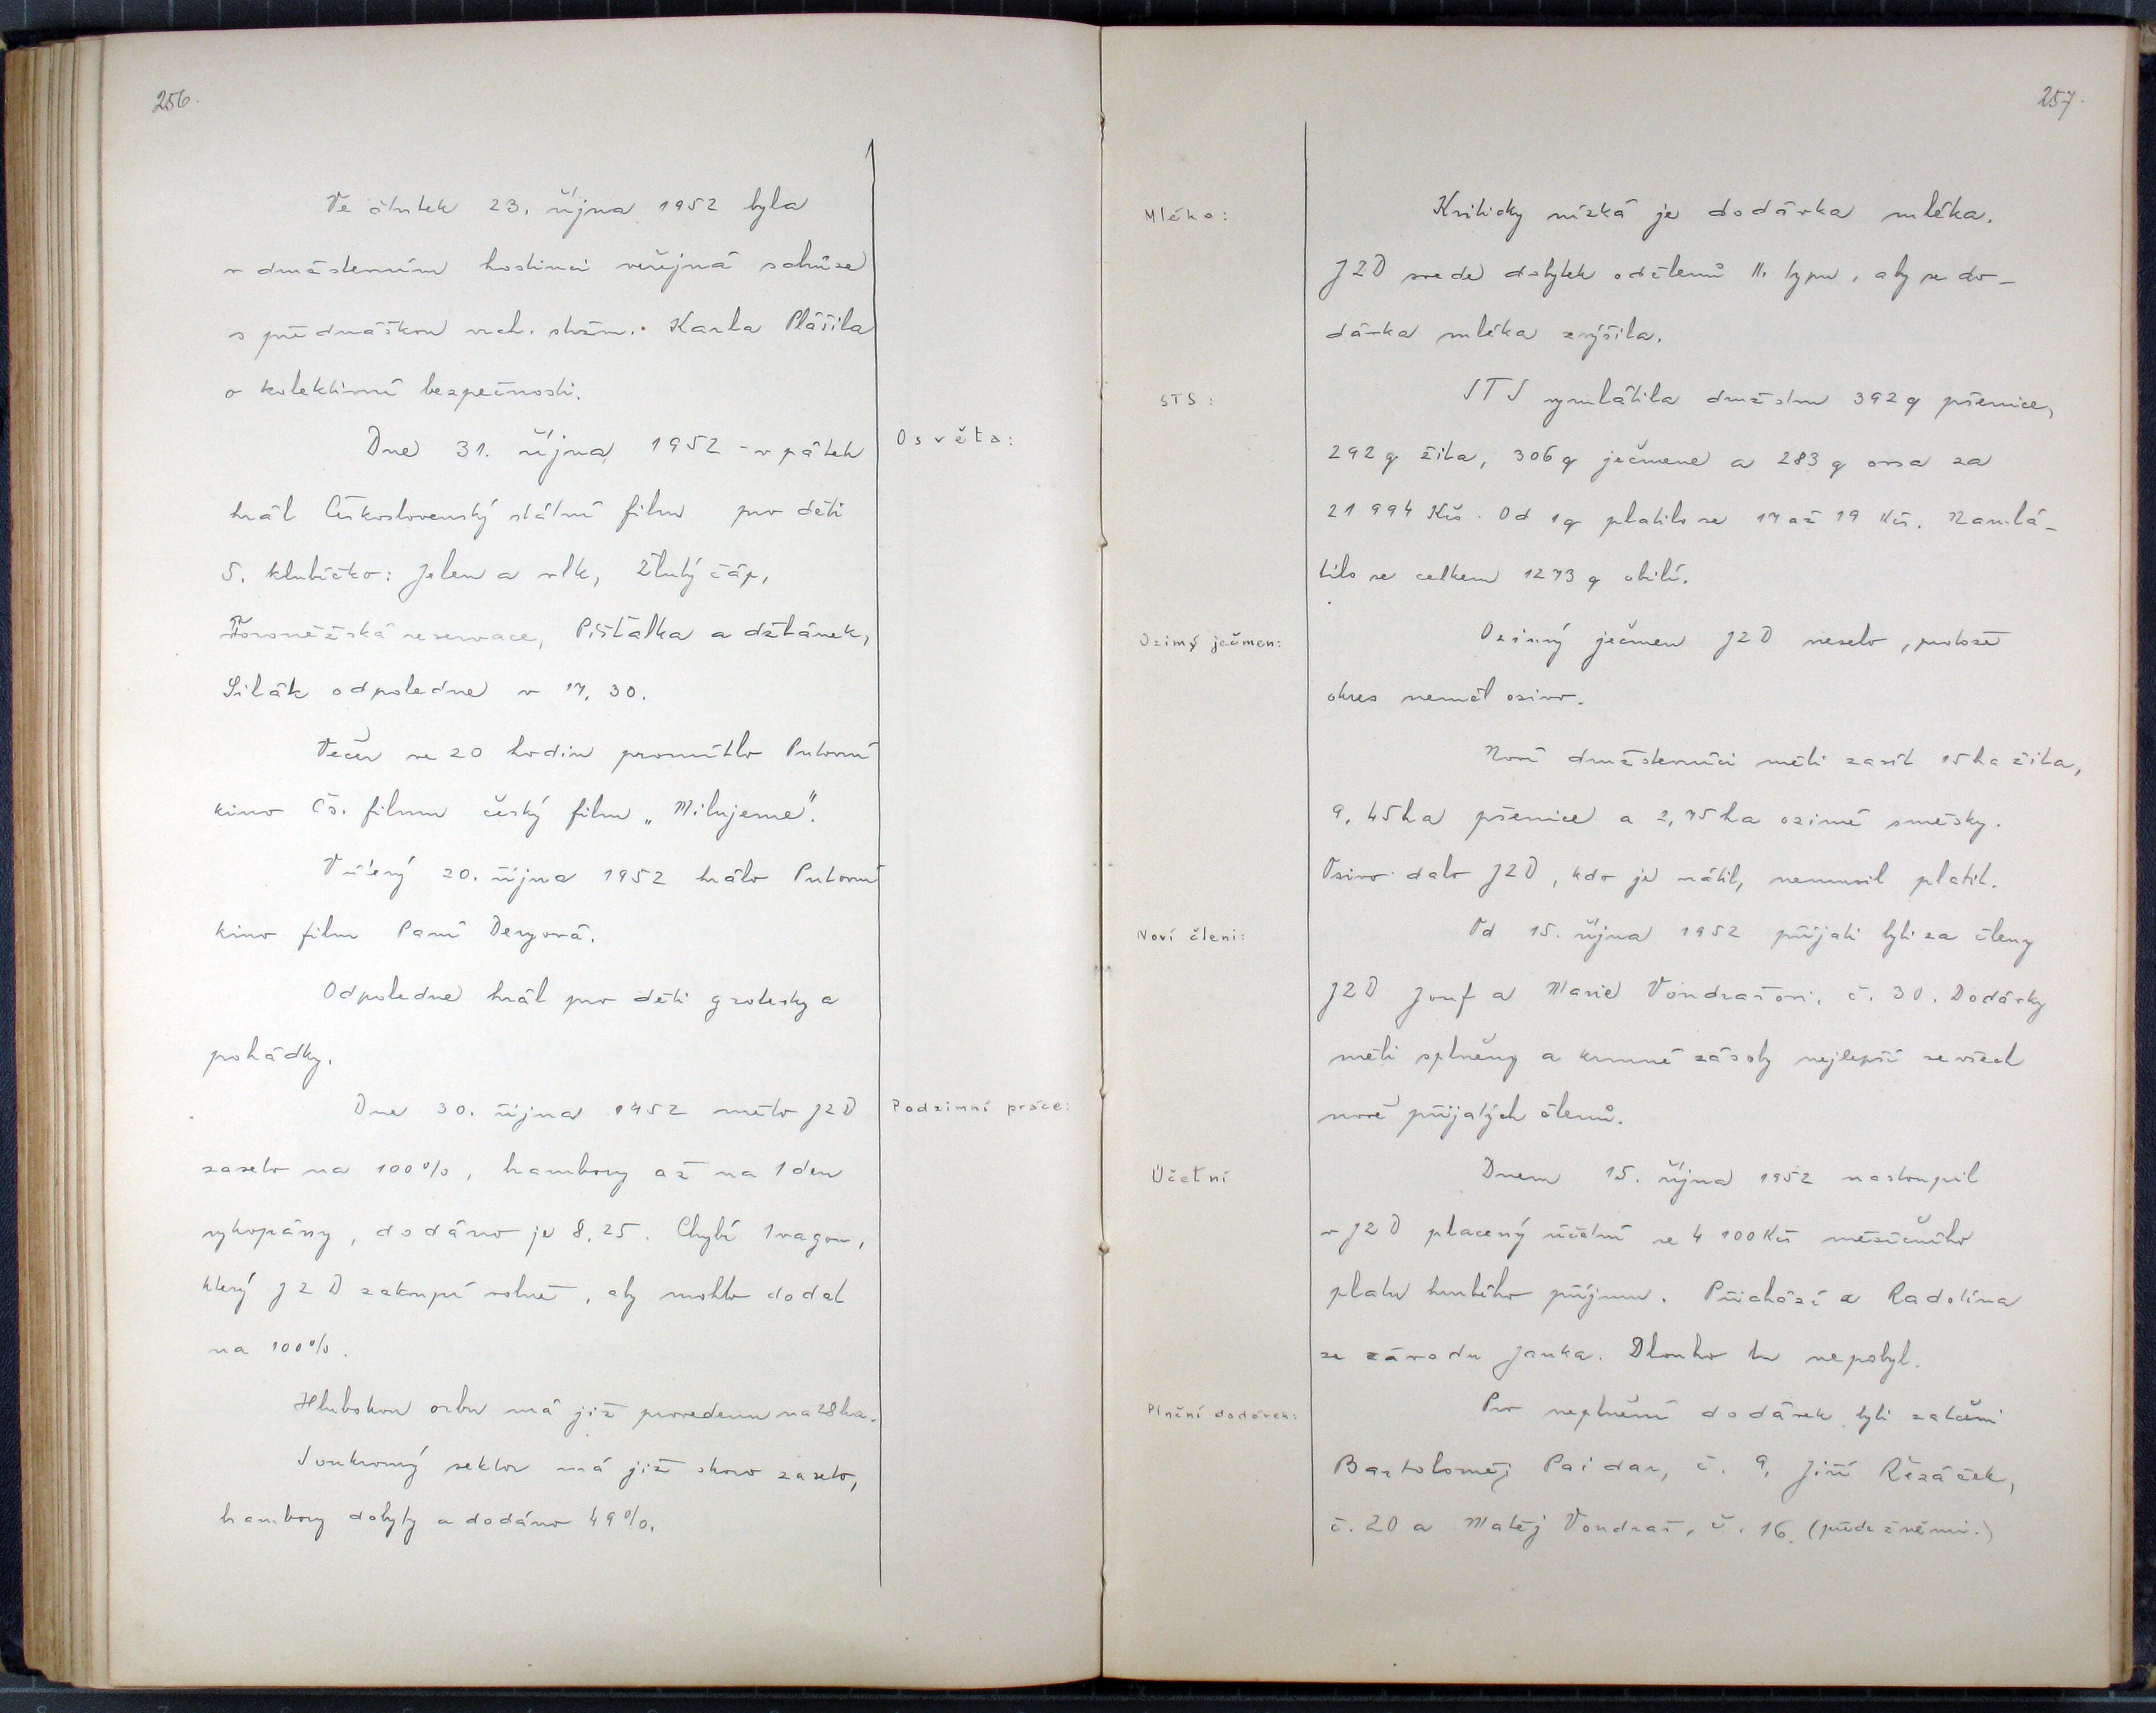 256.
Ve čtvrtek 23. října 1952 byla
v družstevním hostinci veřejná schůze
s přednáškou vrch. strážm. Karla Plášila
o kolektivní bezpečnosti.
Osvěta:
Dne 31. října 1952 - v pátek
hrál Československý státní film pro děti
5. klubíčko: Jelen a vlk, Žlutý čáp,
Voroněžská reservace, Píšťalka a džbánek,
Silák odpoledne v 17,30.
Večer ve 20 hodin promítlo Putovní
kino Čs. filmu český film „Milujeme".
V úterý 20. října 1952 hrálo Putovní
kino film Paní Deryová.
Odpoledne hrál pro děti grotesky a
pohádky.
Podzimní práce:
Dne 30. října 1952 mělo JZD
zaseto na 100%, brambory až na 1 den
vykopány, dodáno je 8,25. Chybí 1 vagon,
který JZD zakoupí volně, aby mohlo dodat
na 100%.
Hlubokou orbu má již provedenu na 28 ha.
Soukromý sektor má již skoro zaseto,
brambory dobyty a dodáno 49%.
257.
Mléko:
Kriticky nízká je dodávka mléka.
JZD svede dobytek od členů II. typu, aby se do-
dávka mléka zvýšila.
STS:
STS vymlátila družstvu 392 q pšenice,
292 q žita, 306 q ječmene a 283 q ovsa za
21 994 Kčs. Od 1 q platilo se 17 až 19 Kčs. Namlá-
tilo se celkem 1273 q obilí.
Ozimý ječmen:
Ozimný ječmen JZD neselo, protože
okres neměl osivo.
Noví družstevníci měli zasít 15 ha žita,
9,45 ha pšenice a 2,75 ha ozimé směsky.
Osivo dalo JZD, kdo je vrátil, nemusil platit.
Noví členi:
Od 15. října 1952 přijati byli za členy
JZD Josef a Marie Vondrašovi, č. 30. Dodávky
měli splněny a krmné zásoby nejlepší ze všech
nově přijatých členů.
Účetní
Dnem 15. října 1952 nastoupil
v JZD placený účetní se 4 100 Kčs měsíčního
platu hrubého příjmu. Přichází z Radotína
ze závodu Janka. Dlouho tu nepobyl.
Plnění dodávek:
Pro neplnění dodávek byli zatčeni
Bartoloměj Paidar, č. 9, Jiří Řezáček,
č. 20 a Matěj Vondraš, č. 16. (přede žněmi.)